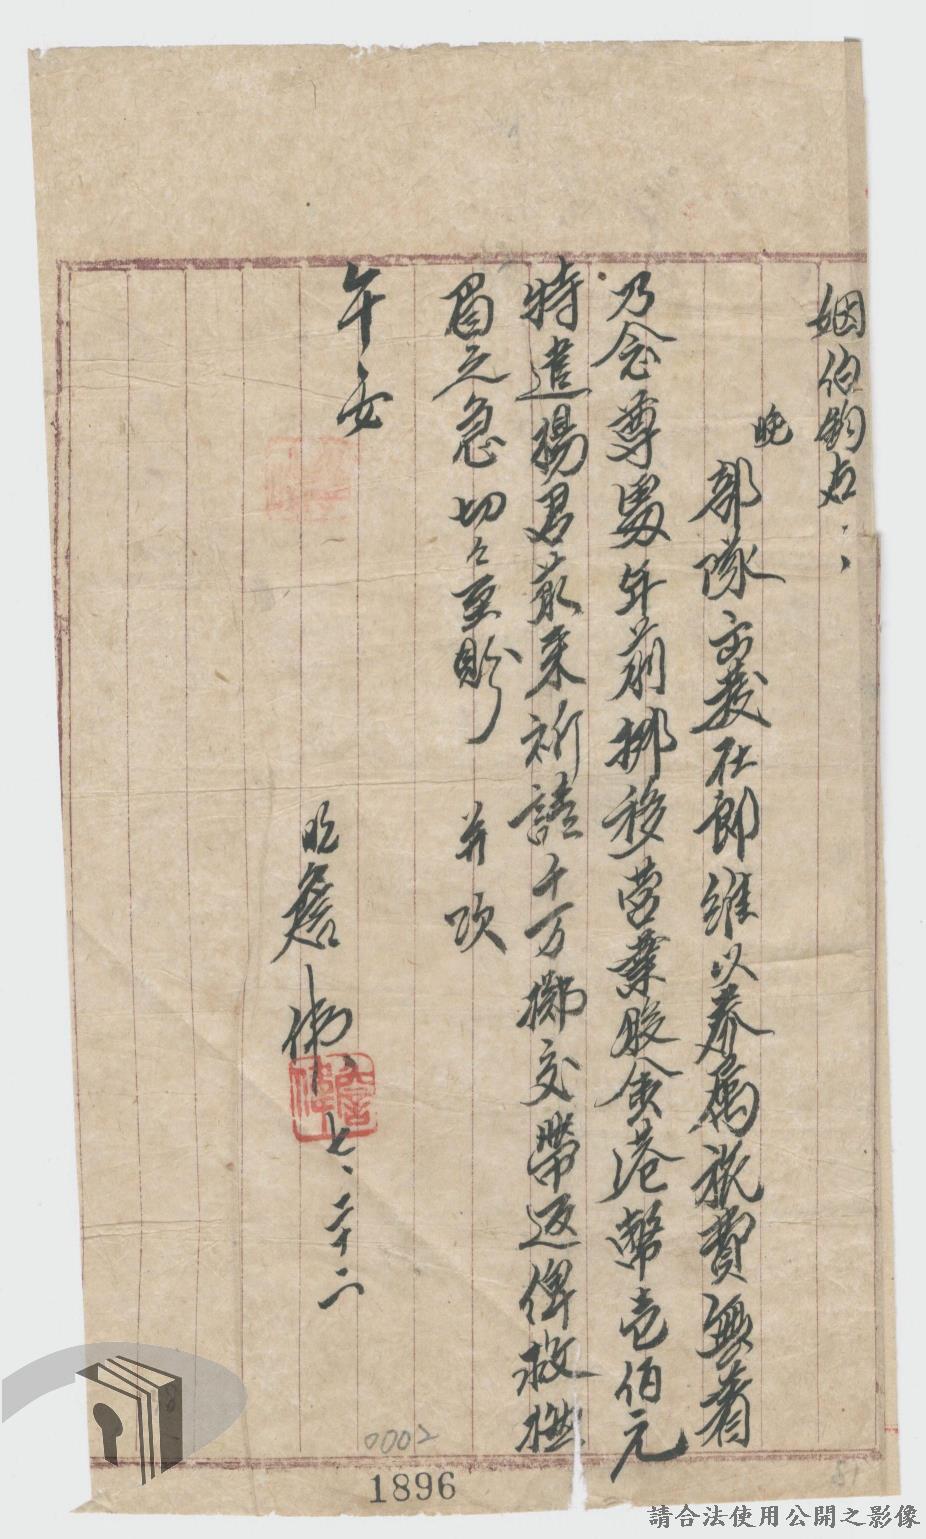 姻伯鈞右：
晚
部隊出發在即維以眷屬旅費無着
乃念尊處年前挪移營業股金港幣壱佰元
特遣楊君前来祈請千万擲交帶返俾救燃
眉之急切々至盼　并頌
午安
晚詹
七、二十二
0002
1896
請合法使用公開之影像